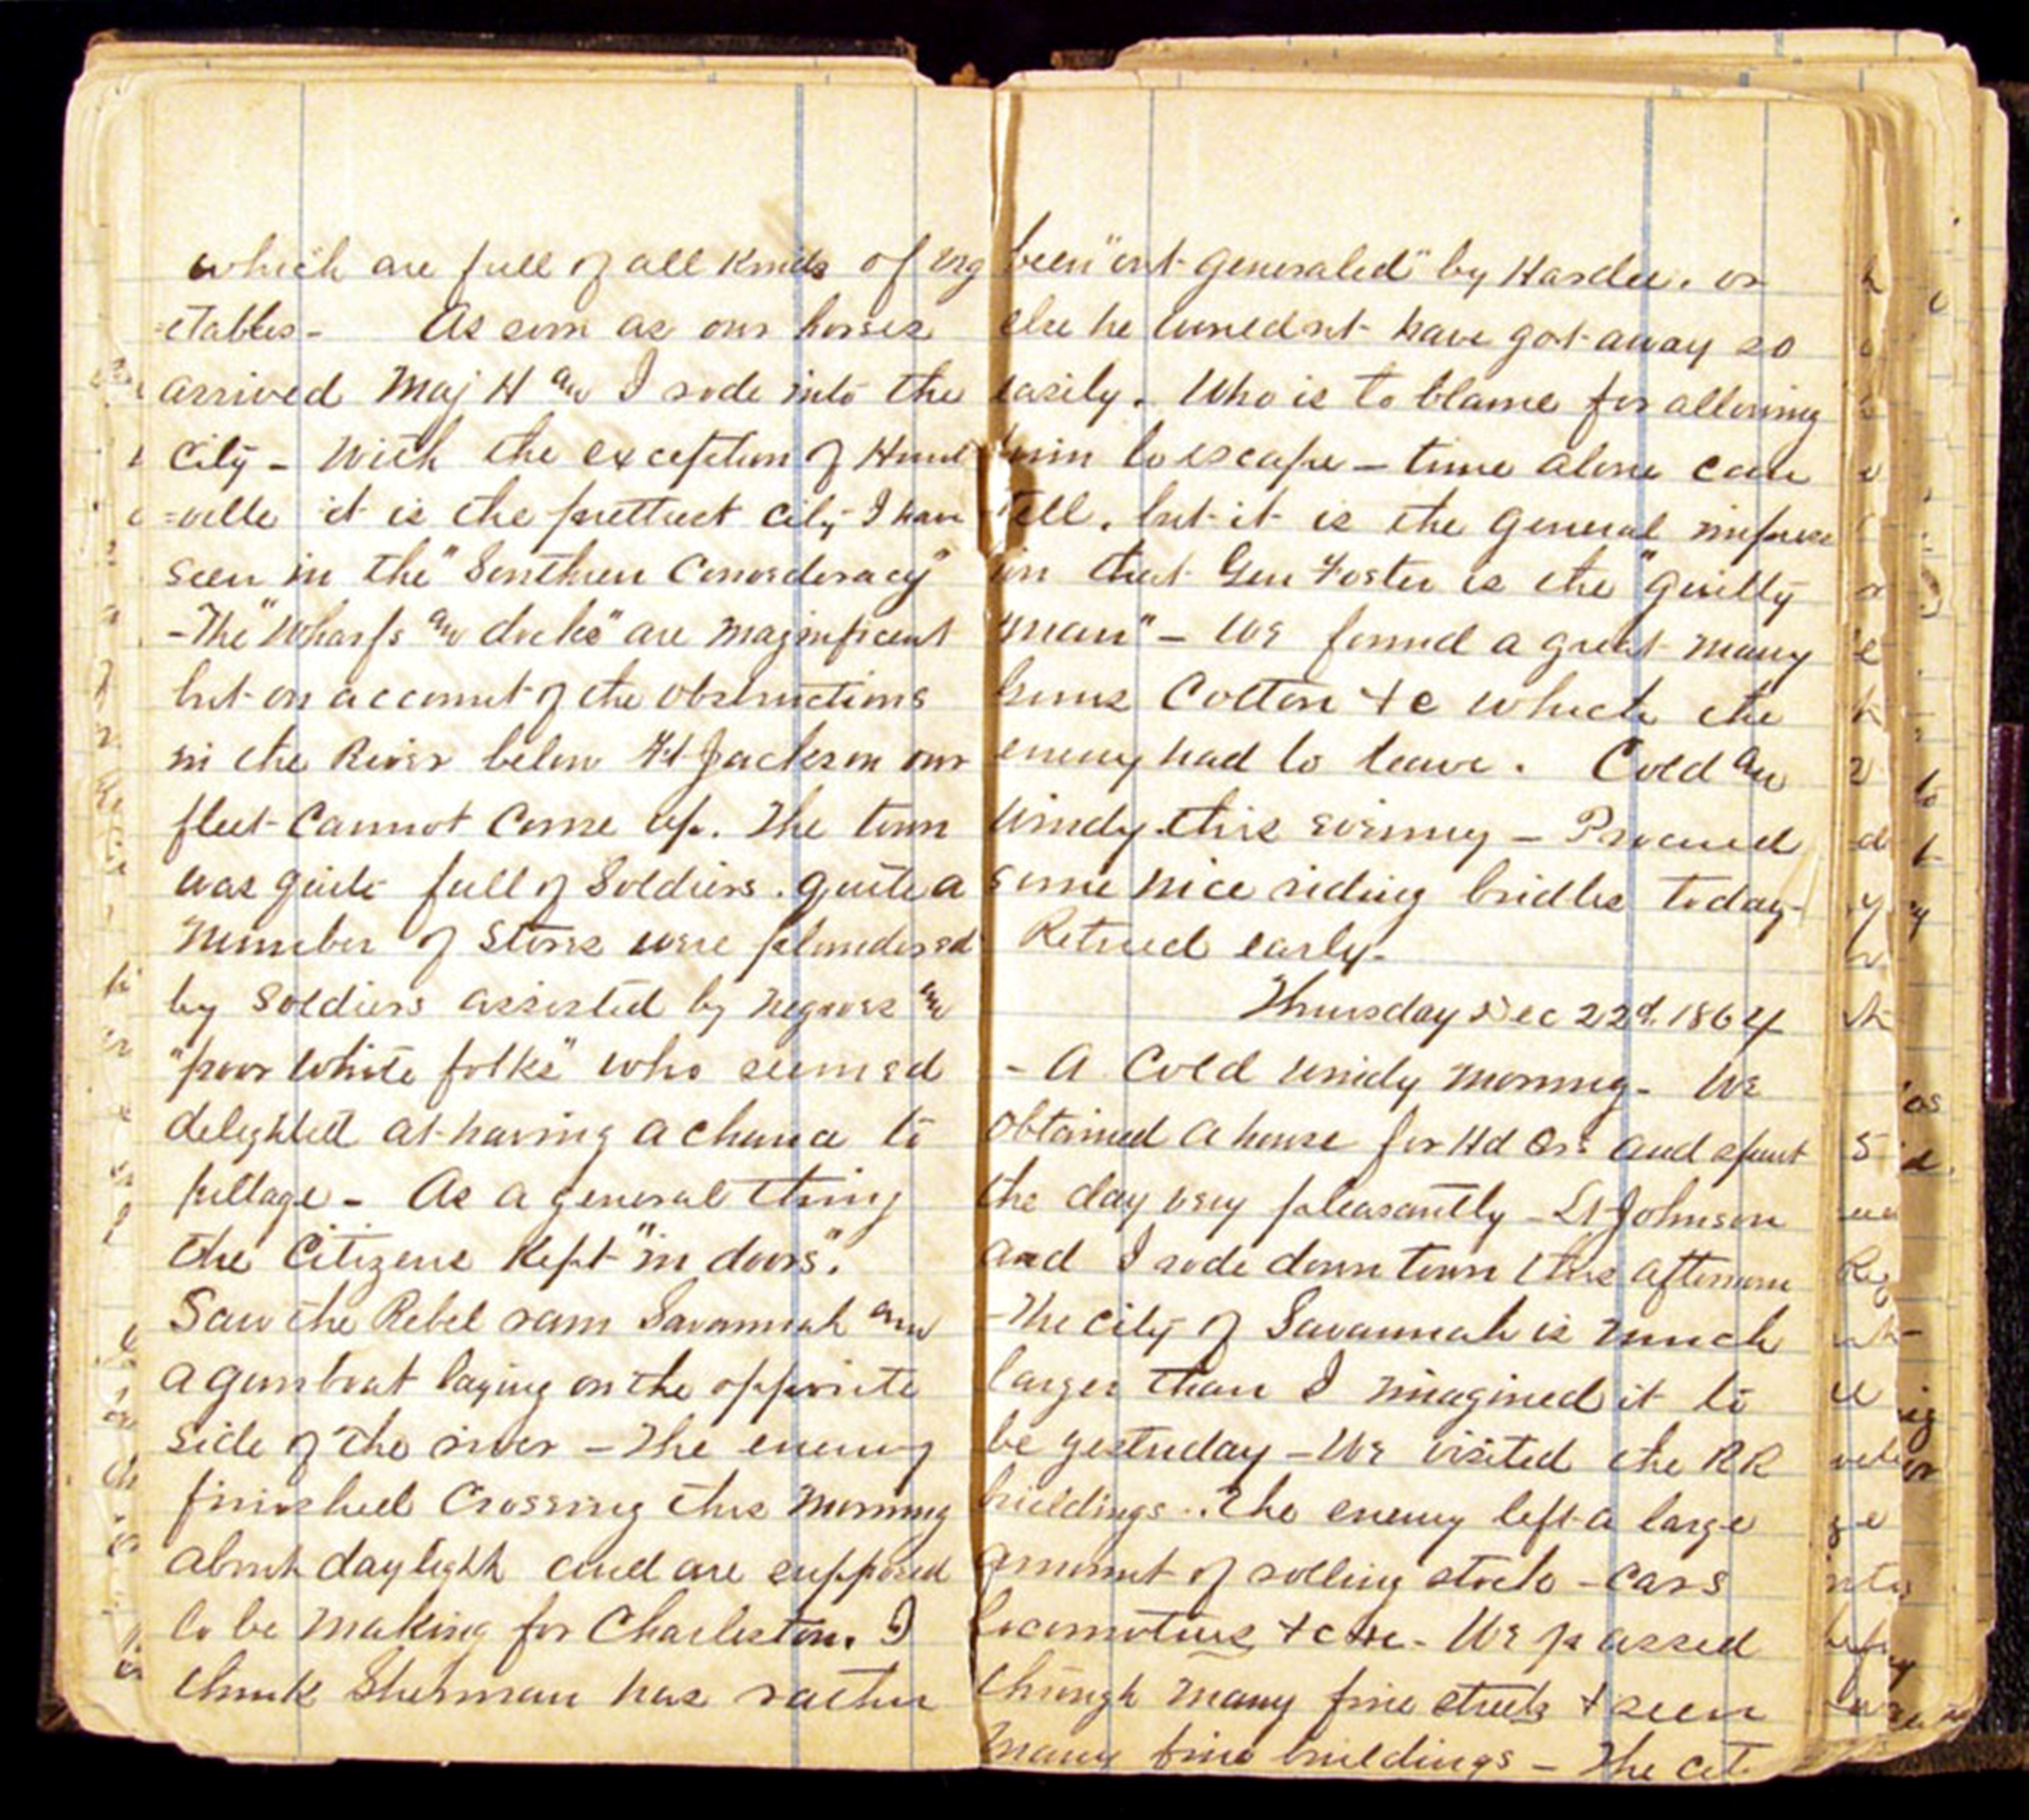 which are full of all kinds of veg
=etables - As soon as our horses
arrived Maj H and I rode into the
City - With the exception of Hunts
=ville it is the prettiest city I have
seen in the "Southern Conofderacy"
- The "Wharfs and docks" are magnificent
but on account of the obstructions
in the River below Ft Jackson our
fleet cannot come up. The town
was quite full of Soldiers. quite a
number of Stores were plundered
by Soldiers assisted by negroes and
"poor white folks" who seemed
delighted at having a chance to
pillage - As a general thing
the Citizens Kept "in doors".
Saw the Rebel ram Savannah and
a gunboat laying on the opposite
side of the river - The enemy
finished Crossing this morning
about daylight and are supposed
to be making for Charleston. I
think Sherman has rather
been "out generaled" by Hardee. or
else he wouldnt have got away so
easily. Who is to blame for allowing
him to escape - time alone can
tell, but it is the general impress
ion that Gen Foster is the "guilty
man" - We found a great many
guns Cotton +c which the
enemy had to leave. Cold and
windy this evening - Procured
some nice riding bridles today -
Retired early -
Thursday Dec 22d. 1864
- A Cold windy morning - We
obtained a house for Hd Qrs and spent
the day very pleasantly - Lt Johnson
and I rode down town this afternoon
- The City of Savannah is much
larger than I imagined it to
be yesterday - We visited the RR
buildings.. The enemy left a large
amount of rolling stock - cars
locomotives +c +c - We passed
through many fine streets + seen
many fine buildings - The cit